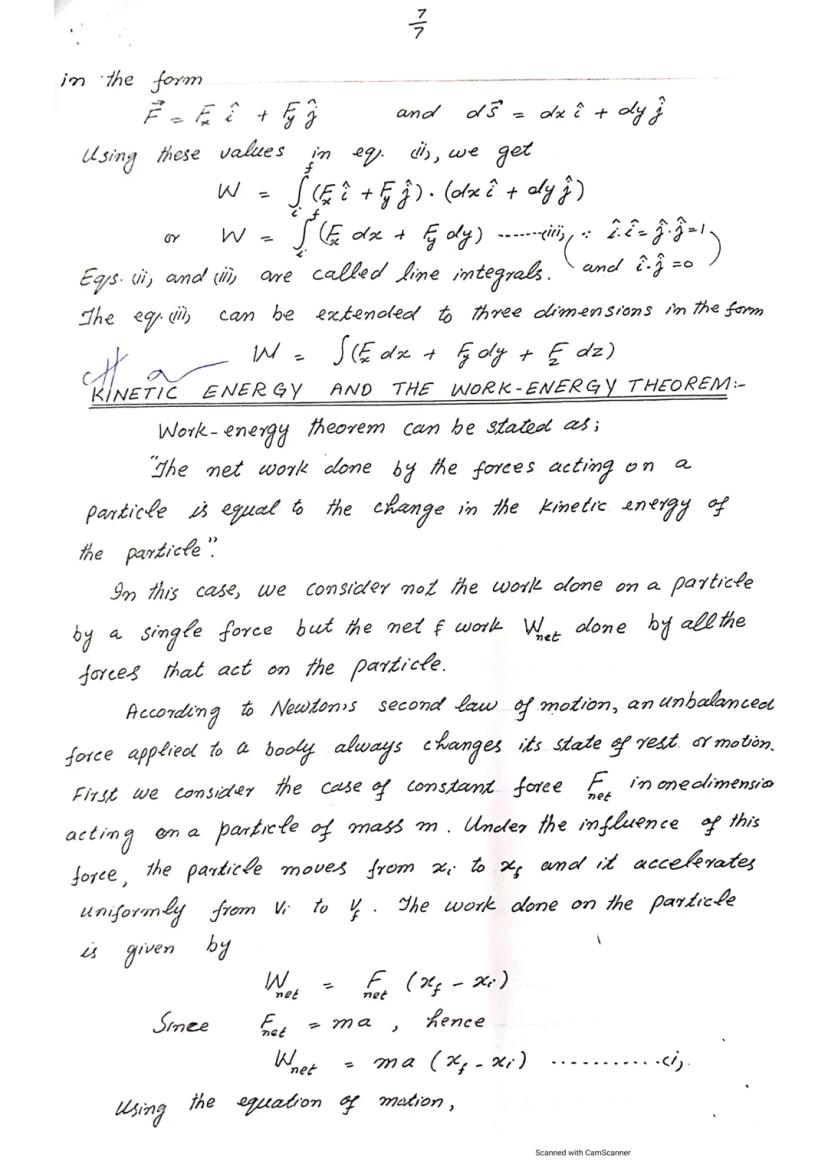 7/7
in the form
F⃗ = Fₓ î + Fᵧ ĵ and ds⃗ = dx î + dy ĵ
Using these values in eq. (i), we get
W = ∫ᵢᶠ (Fₓ î + Fᵧ ĵ) . (dx î + dy ĵ)
or W = ∫ᵢᶠ (Fₓ dx + Fᵧ dy) .......(iii) (∵ î.î = ĵ.ĵ = 1 and î.ĵ = 0)
Eqs. (i), and (iii), are called line integrals.
The eq. (iii), can be extended to three dimensions in the form
W = ∫(Fₓ dx + Fᵧ dy + F_z dz)
KINETIC ENERGY AND THE WORK-ENERGY THEOREM:-
Work-energy theorem can be stated as;
"The net work done by the forces acting on a
particle is equal to the change in the kinetic energy of
the particle".
In this case, we consider not the work done on a particle
by a single force but the net f work W_net done by all the
forces that act on the particle.
According to Newton's second law of motion, an unbalanced
force applied to a body always changes its state of rest or motion.
First we consider the case of constant force F_net in one dimensio
acting on a particle of mass m. Under the influence of this
force, the particle moves from xᵢ to x_f and it accelerates
uniformly from vᵢ to v_f. The work done on the particle
is given by
W_net = F_net (x_f - xᵢ)
Since F_net = ma, hence
W_net = ma (x_f - xᵢ) ...........(i),
Using the equation of motion,
Scanned with CamScanner